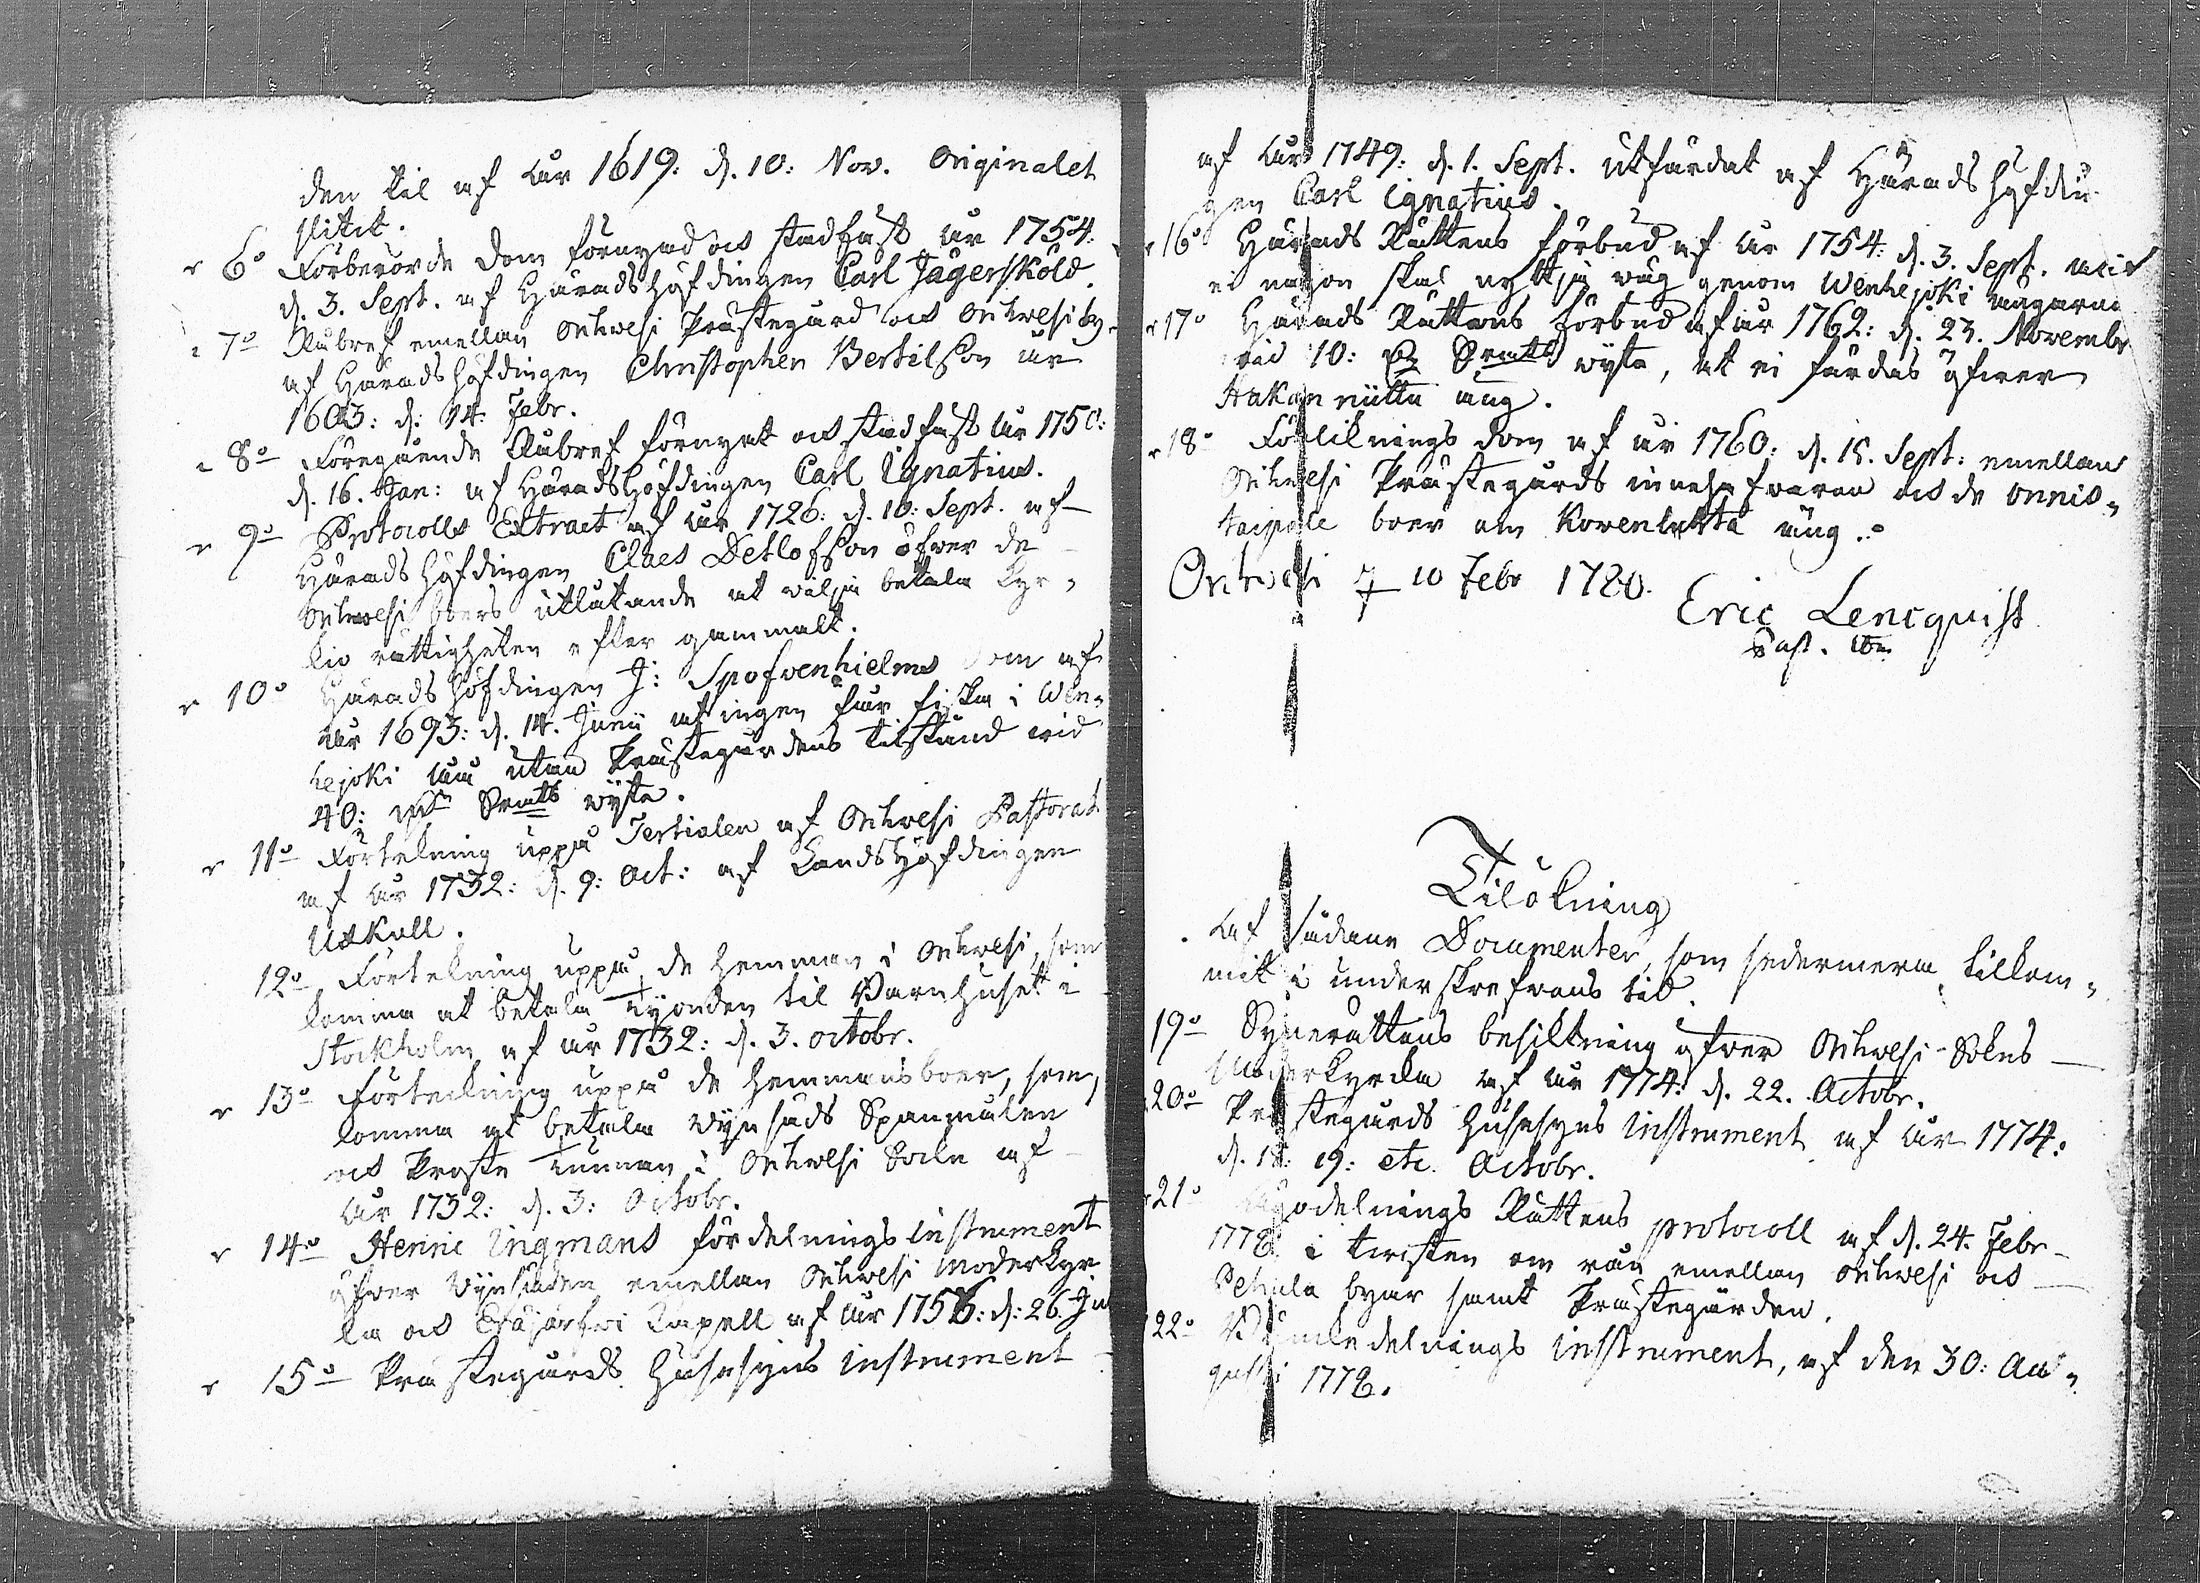 den til af år 1619: d. 10: Nov. Originalet
slitit.
6o Förberörde dom förnyad och stadfäst år 1754.
d. 3. Sept. af Häradshöfdingen Carl Jägerskold.
7o Råbref emellan Orihvesi Prästegård och Orihvesi by
af Häradshöfdingen Christopher Bertilsson år
1603: d: 14: Febr.
8o Föregående Råbref förnyat och stadfäst år 1750:
d. 16. Jan: af Häradshöfdingen Carl Ignatius.
9o Protocolls Extract af år 1726: d. 10: Sept. af
Häradshöfdingen Claes Detlofsson öfver de
Orihvesi boers utlåtande at vilja betala Kyr-
kio rättigheten efter gammalt.
10o Häradshöfdingen J: Spofvenhielms Dom af
år 1693: d. 14. Junii at ingen får fiska i Wen-
hejoki åå utan Prästegårdens tilstånd vid
40: Smts wite.
11o Förtekning uppå Tertialen af Orihvesi Pastorat
af år 1732: d. 9: Oct: af Landshöfdingen
Uxkull.
12o Förtekning uppå de Hemman i Orihvesi, som
komma at betala Tyonden til Barnhuset i
Stockholm af år 1732: d. 3. octobr.
13o Förteckning uppå de Hemmansboer, som
komma at betala Vynsåds Spanmålen
och Proste Tunnan i Orihvesi Sokn af
år 1732: d. 3: Octobr.
14o Henric Ingmans fördelnings instrument
öfver Vynsåden emellan Orihvesi Moderkyr
ka och Eräjärfvi Kapell af år 1756: d: 26. Ju
15o Prästegårds Husesyns instrument
af år 1749: d. 1. Sept. utfärdat af Häradshöfdin
gen Carl Ignatius.
16o Härads Rättens förbud af år 1754: d. 3. Sept. at
ei någon skal nyttja väg genom Wenhejoki ängarne
17o Härads Rättens förbud af år 1762: d. 23. Novembr
vid 10: Smts wite, at ei färdas öfwer
Hakan niittu äng.
18o Förliknings dom af år 1760: d. 18. Sept: emellan
Orihvesi Prästegårds innehafvaren och de Onnis-
taipale boer om Kovenlahta äng.
Orihvesi d 10 Febr 1780.
Eric Lencquist
Past. ibm
Tilökning
Af sådane Documenter, som sedermera tilkom-
mit i underskrefvens tid.
19o Synerättens besiktning öfver Orihvesi Sokns
Moderkyrcka af år 1774: d. 22. Octobr.
20o Prästegårds Husesyns instrument af år 1774.
d. 18: 19: etc. Octobr.
21o Ägodelnings Rättens protocoll af d. 24. Febr
1778. i twisten om rån emellan Orihvesi och
Pehula byar samt Prästegården.
22o delnings instrument, af den 30: Au-
gusti 1778.